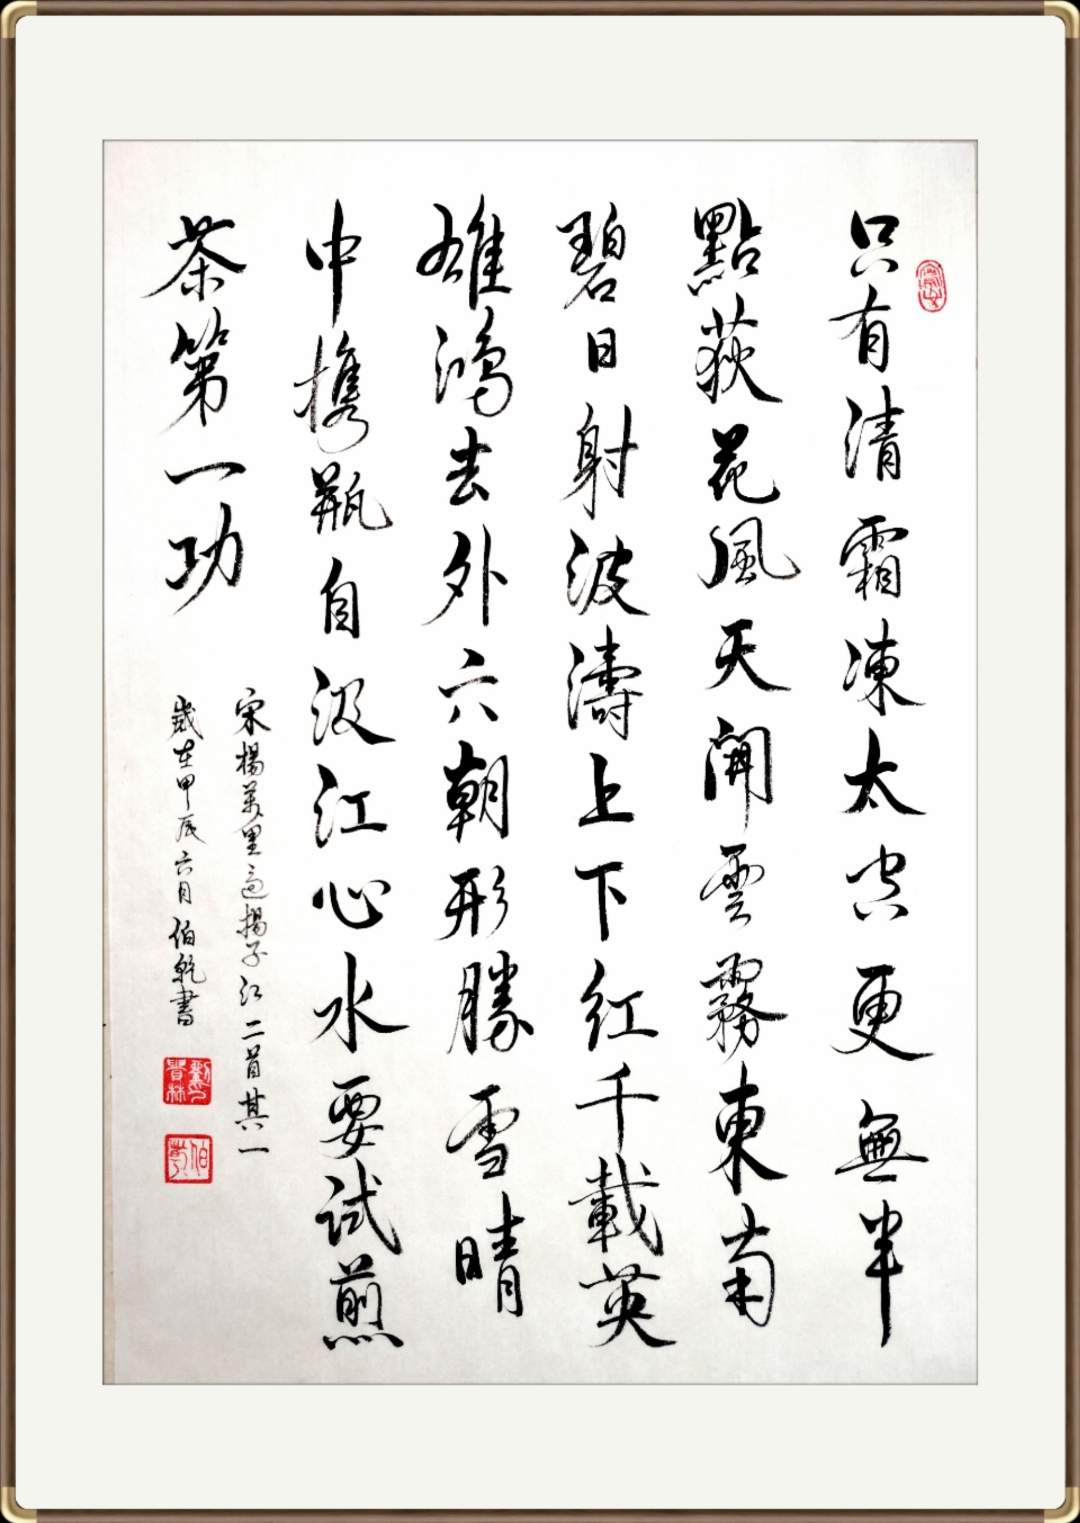 只有清霜凍太空更無半
點荻花風天開雲霧東南
碧日射波濤上下紅千載英
雄鴻去外六朝形勝雪晴
中攜瓶自汲江心水要試煎
茶第一功
宋楊萬里過揚子江二首其一
歲在甲辰六月伯乾書
伯乾